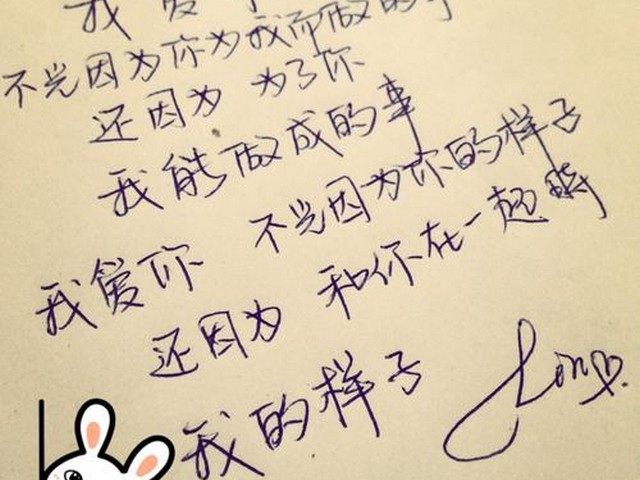 我爱
不光因为你为我而做的事
还因为 为了你
我能做成的事
我爱你 不光因为你的样子
还因为 和你在一起时
我的样子